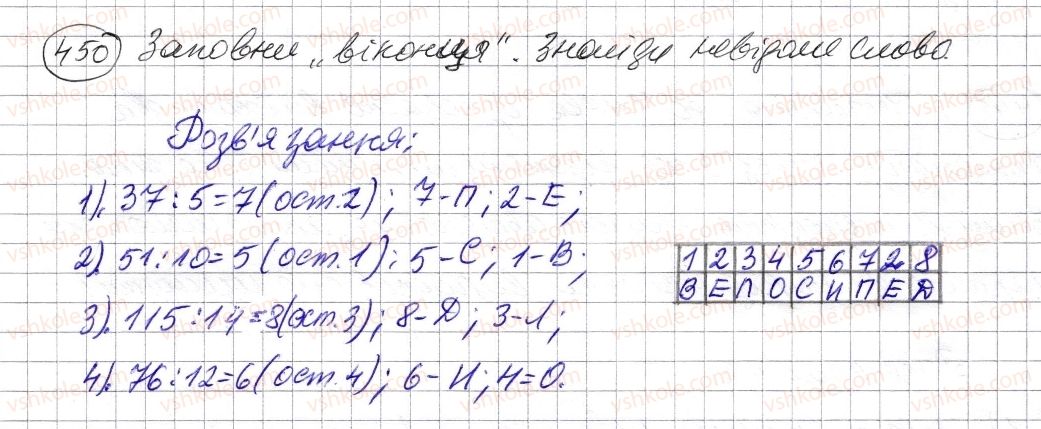 450 Заповни „віконця". Знайди невідоме слово.
Розв'язання:
1). 37 : 5 = 7 (ост. 2); 7 - П; 2 - Е;
2). 51 : 10 = 5 (ост. 1); 5 - С; 1 - В;
3). 115 : 14 = 8 (ост. 3); 8 - Д; 3 - Л;
4). 76 : 12 = 6 (ост. 4); 6 - И; 4 = О.
1 2 3 4 5 6 7 2 8
В Е Л О С И П Е Д